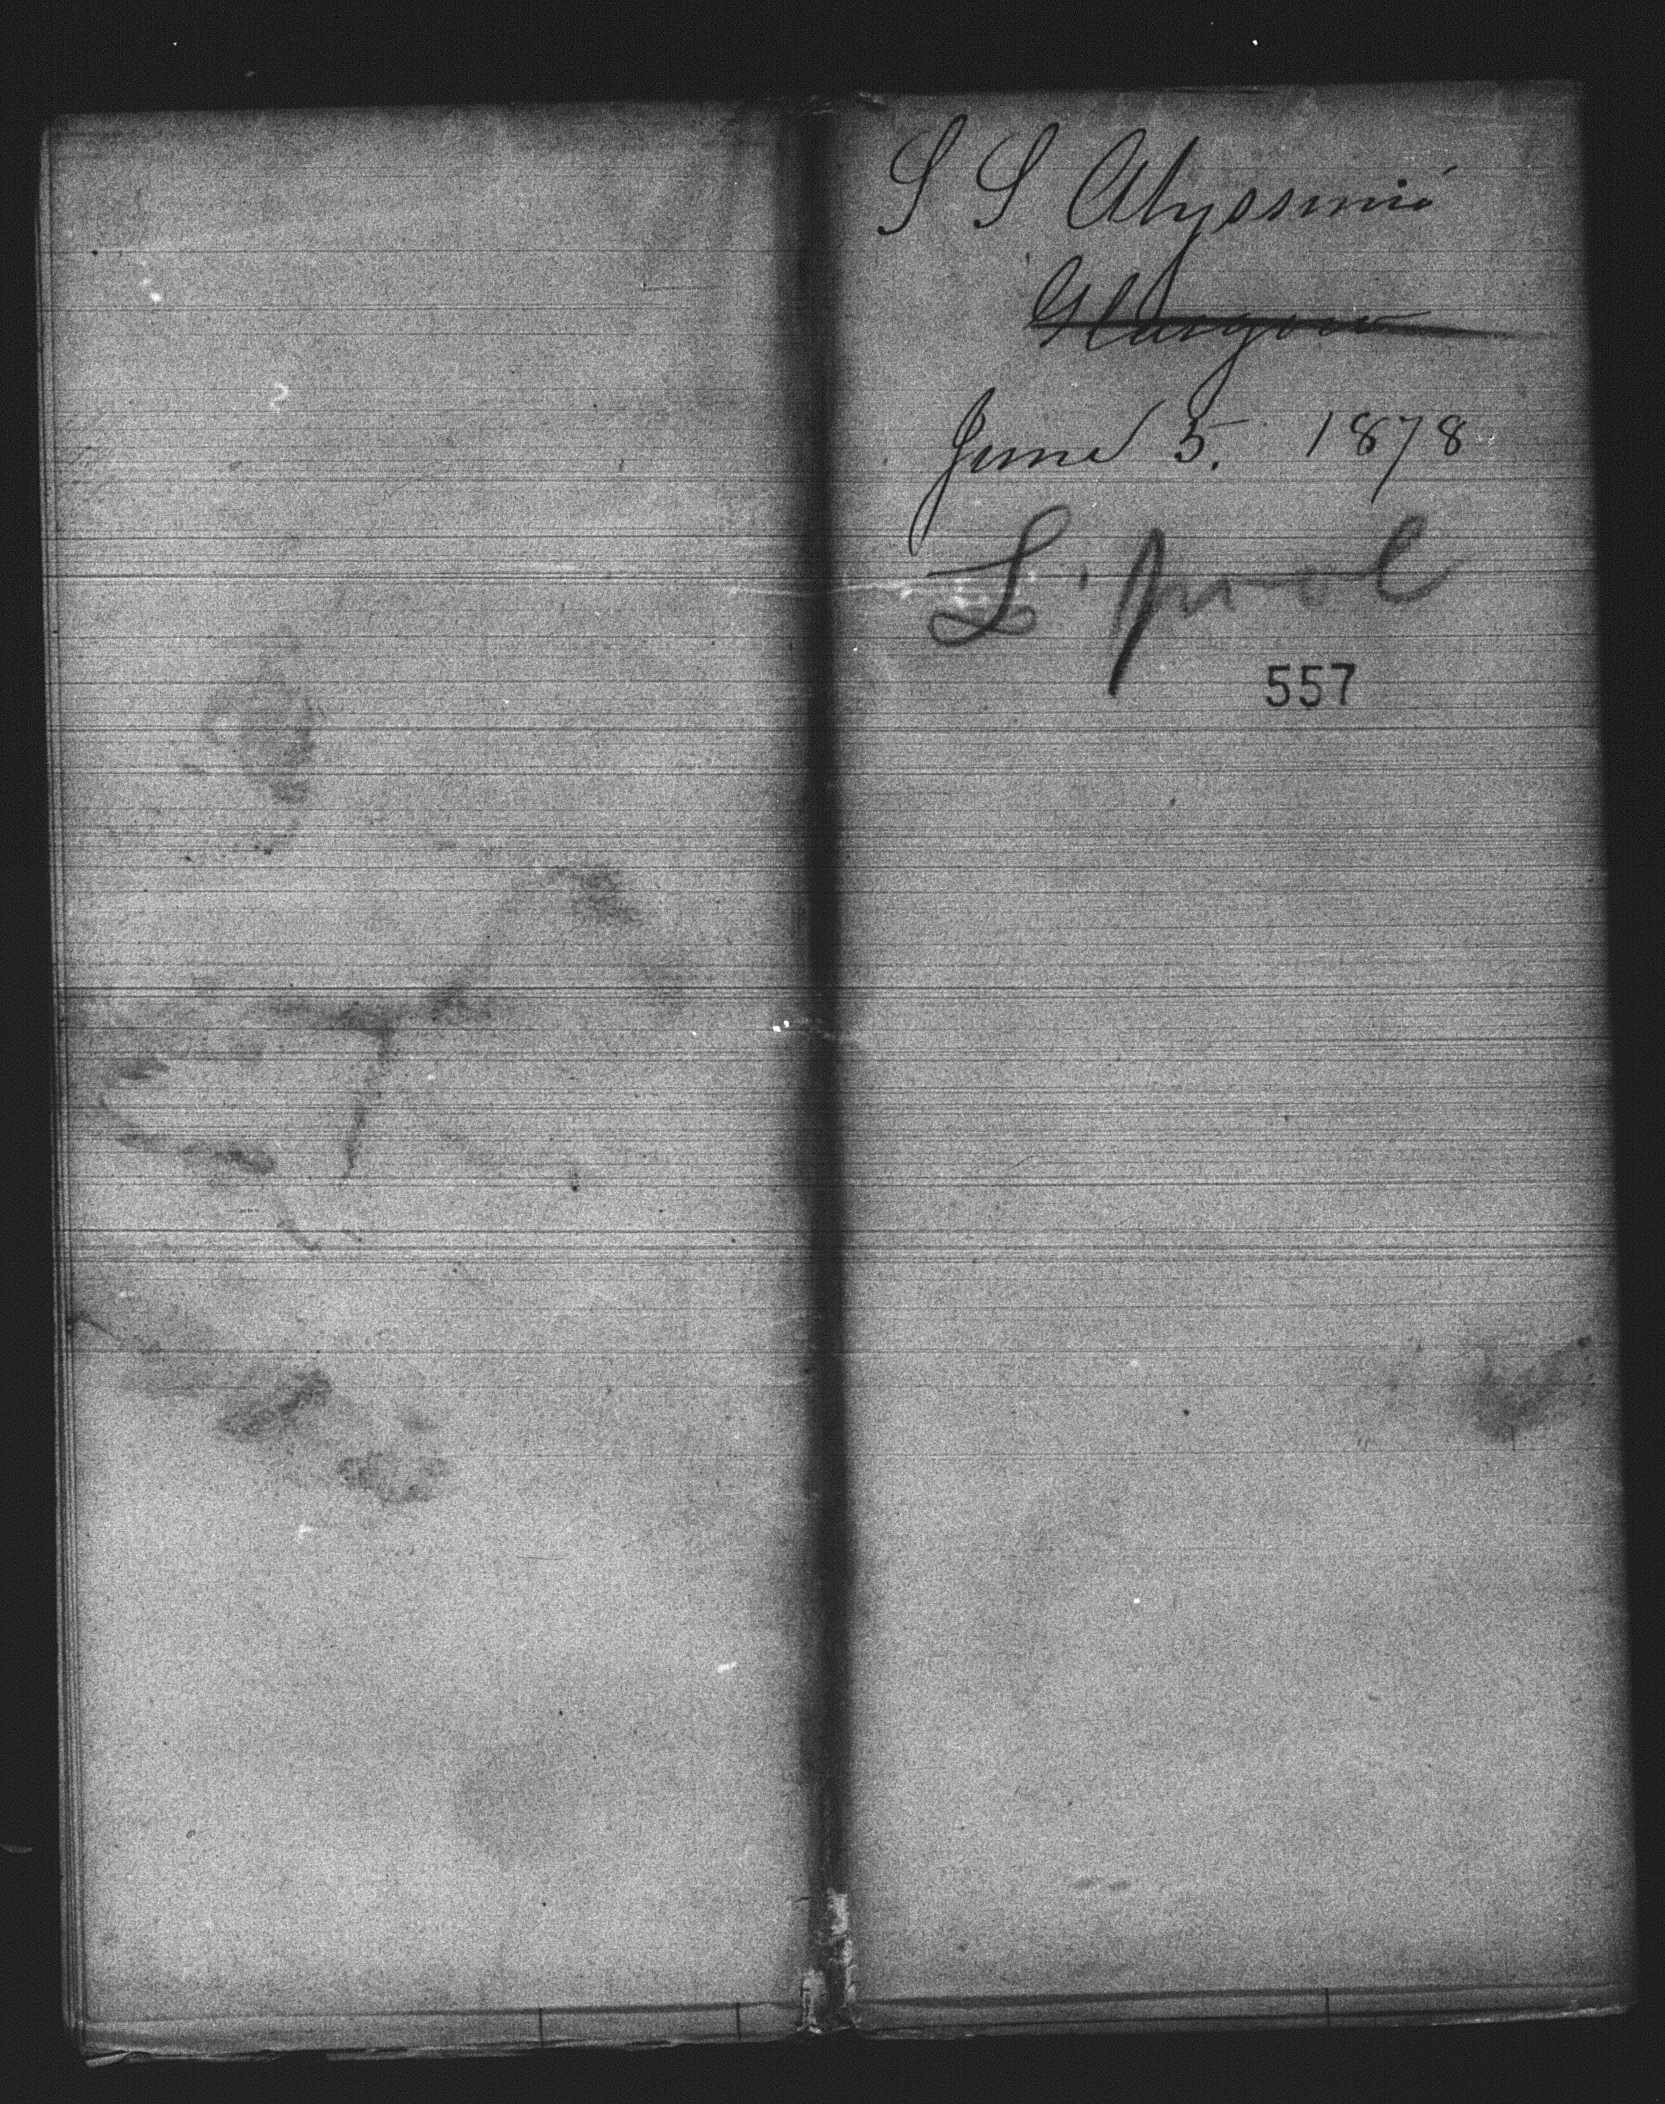 S S Abyssinia
Glasgow
June 5. 1878
L'pool
557